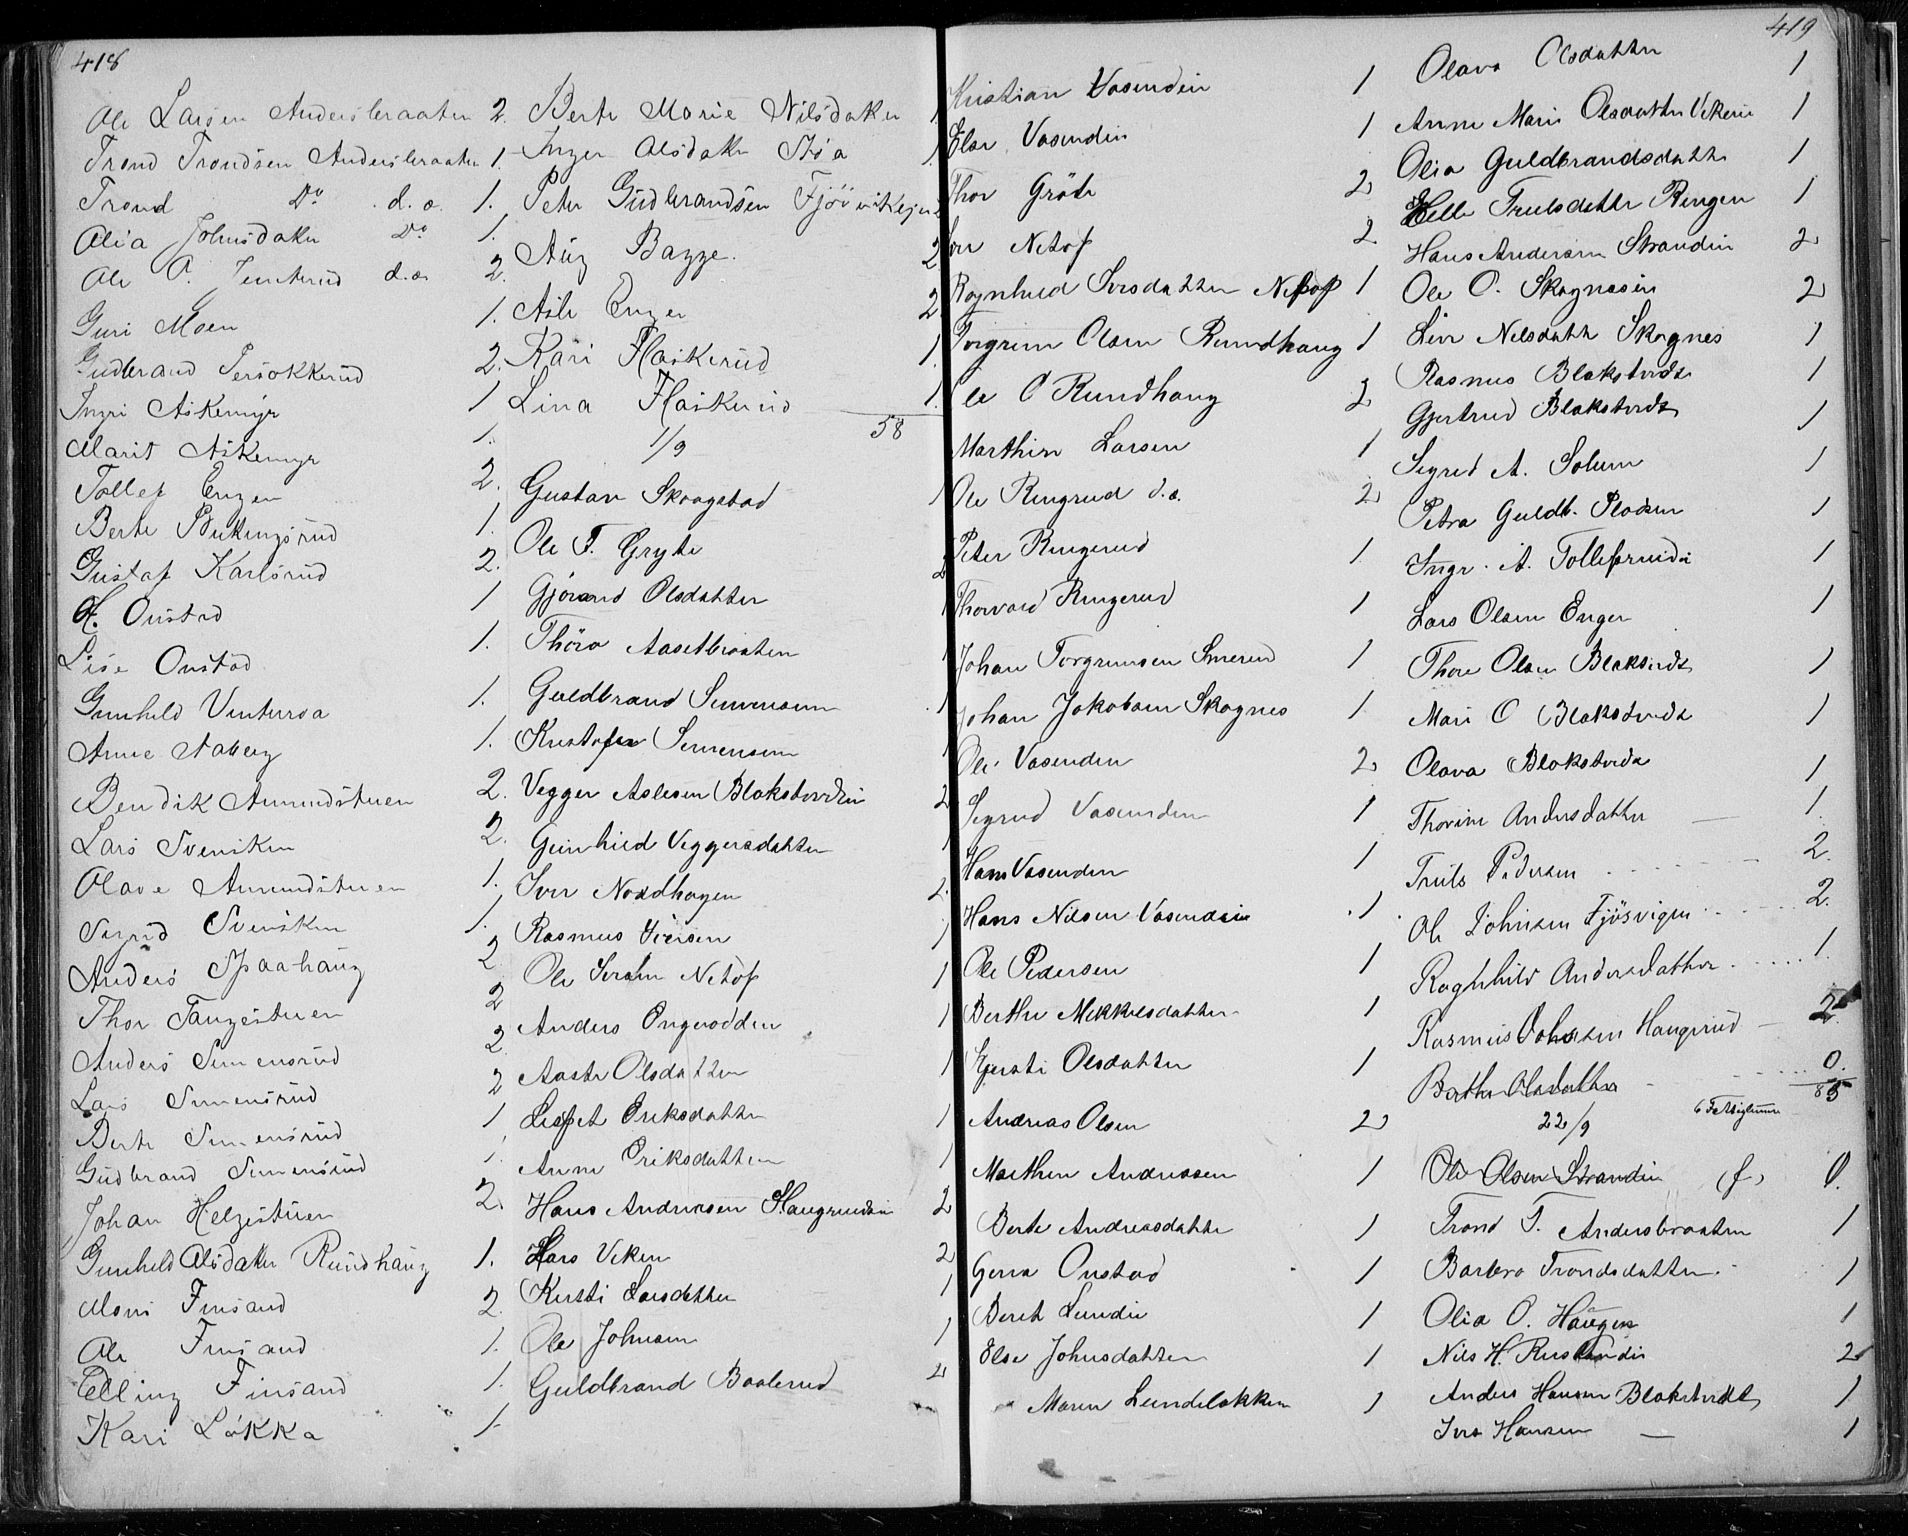 418
Ole Larsen Andersbraaten 2.
Trond Trondsen Andersbraaten 1.
Trond Do d. æ. 1.
Olia Johnsdatter Do 1.
Ole P. d.æ. 2.
Guri Moen 1.
Gudbrand Persokkerud 2.
Ingri Askemyr 1
Marit Askemyr 1.
Tollef Enger 2.
Berte 1.
Gustaf Karlsrud 2.
Onstad 1
Lise Onstad 1.
Gunhild Vinterroa 1.
Anne Aaberg 1.
Bendik Amundstuen 2.
Lars Svensken 2.
Olave Amundstuen 1.
Sigrid Svensken 1.
Anders Spaahaug 2
Thor Tangestuen 2
Anders Simensrud 2
Lars Simensrud 2
Berte Simensrud 1
Gudbrand Simensrud 1.
Johan Helgestuen 2.
Gunhild Olsdatter Rundhaug 1.
Mons Finsand 2.
Ole Finsand 1.
Elling Finsand 1.
Kari Løkka 1
Berte Marie Nilsdatter 1.
Inger Olsdatter 1
Peter Gudbrandsen 2
Aug Bagge. 2
Asle Enger 2
Kari Haskerud 1
Lina Haskerud 1.
1/9 58
Gustav Skragstad 1
Ole T. Gryte 2
Gjørand Olsdatter 1
Thöra Aasetbraaten 1
Guldbrand Simensen 1
Kristofer Simensen 1
Vegger Aslesen Blakstvedt 2
Gunhild Veggersdatter 1
Iver Nordhagen 2.
Rasmus Iversen 1
Ole Iversen Netof 1
Anders Ongerodden 1
Aaste Olsdatter 1
Lisbet Eriksdatter 1
Anne Eriksdatter 1
Hans Andreasen Haugerud 2
Lars Veken 2
Kirsti Larsdatter 1
Ole Johnsen 1
Guldbrand Baalerud 2
419
Kristian Vasenden 1
Else Vasenden 1
Thor Gröte 2
Iver Netof 2
Ragnhild Iversdatter Netof 1
Torgrim Olsen Rundhaug 1
Ole O Rundhaug 2
Marthin Larsen 1
Ole Ringerud d.æ. 2
Peter Ringerud 1.
Thorvald Ringerud 1
Johan Torgrimsen Smerud 1
Johan Jakobsen Skagnes 1
Ole Vasenden 2
Sigrid Vasenden 1
Hans Vasenden 1
Hans Nilsen Vasenden 1
Ole Pedersen 1
Berthe Mikkelsdatter 1
Kjersti Olsdatter 1
Andreas Olsen 2
Marthin Andreassen 1
Berte Andreasdatter 1
Onstad 1
Berit Lunde 1
Else Johnsdatter 1
Maren Lundeløkken 1
Olava Olsdatter 1
Anne Marie Olsdatter Vekern 1
Olia Guldbrandsdatter 1
Helle Trulsdatter Ringer 1
Hans Andersen Stranden 2
Ole O. Skagnesen 2
Live Nilsdatter Skagnes 1
Rasmus Blakstvedt 1
Gjertrud Blakstvedt 1
Sigrid A. Solum 1
Petra Guldb. Pladsen 1
Ingr. A. Tollefsrude 1
Lars Olsen Enger 1
Thore Olsen Blakstvedt 1
Mari O Blakstvedt 1
Olava Blakstvedt 1
Thorine Andersdatter 1.
Truls Pedersen 2.
Ole Johnsen Fjösvigen 2.
Raghnhild Andersdatter 1.
Rasmus Johnsen Haugerud 2.
Berthe Olsdatter 0.
22/9 85
Ole Olsen Stranden (f) 0.
Trond T. Andersbraaten 1
Barbro Trondsdatter 1
Olia O. Haugen 1
Nils H. Rustanden 2
Anders Hansen Blakstvedt 1
Iver Hansen — 1